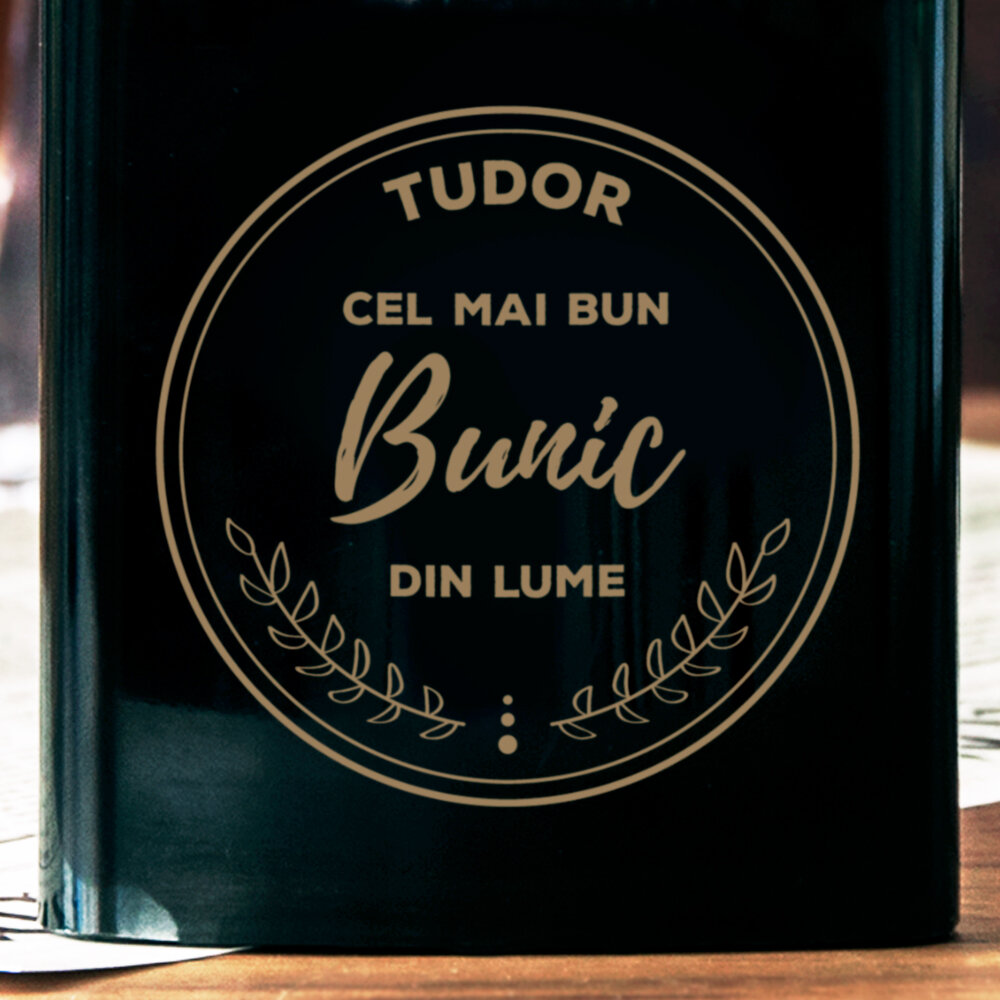 TUDOR
CEL MAI BUN
Bunic
DIN LUME